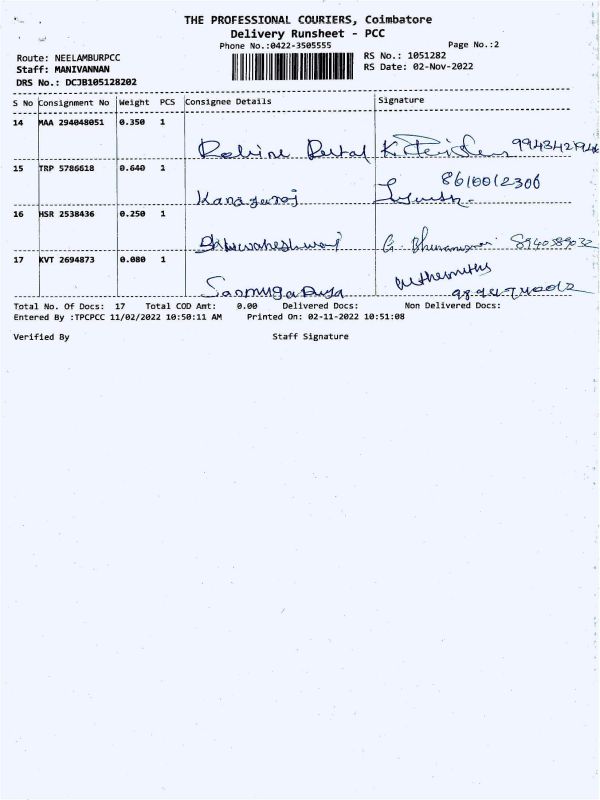 THE PROFESSIONAL COURIERS, Coimbatore
Delivery Runsheet - PCC
Phone No.:0422-3505555 Page No.:2
Route: NEELAMBURPCC RS No.: 1051282
Staff: MANIVANNAN RS Date: 02-Nov-2022
DRS No.: DCJB105128202
S No Consignment No Weight PCS Consignee Details Signature
14 MAA 294048051 0.350 1
15 TRP 5786618 0.640 1
8610012306
Kanagaraj
16 HSR 2538436 0.250 1
8940389032
17 KVT 2694873 0.080 1
Total No. Of Docs: 17 Total COD Amt: 0.00 Delivered Docs: Non Delivered Docs:
Entered By :TPCPCC 11/02/2022 10:50:11 AM Printed On: 02-11-2022 10:51:08
Verified By Staff Signature